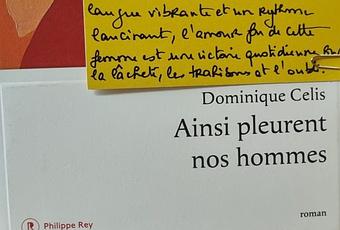 langue vibrante et un rythme
lancinant, l'amour fou de cette
femme est une victoire quotidienne sur
la lâcheté, les trahisons et l'oubli.
Dominique Celis
Ainsi pleurent
nos hommes
roman
Philippe Rey